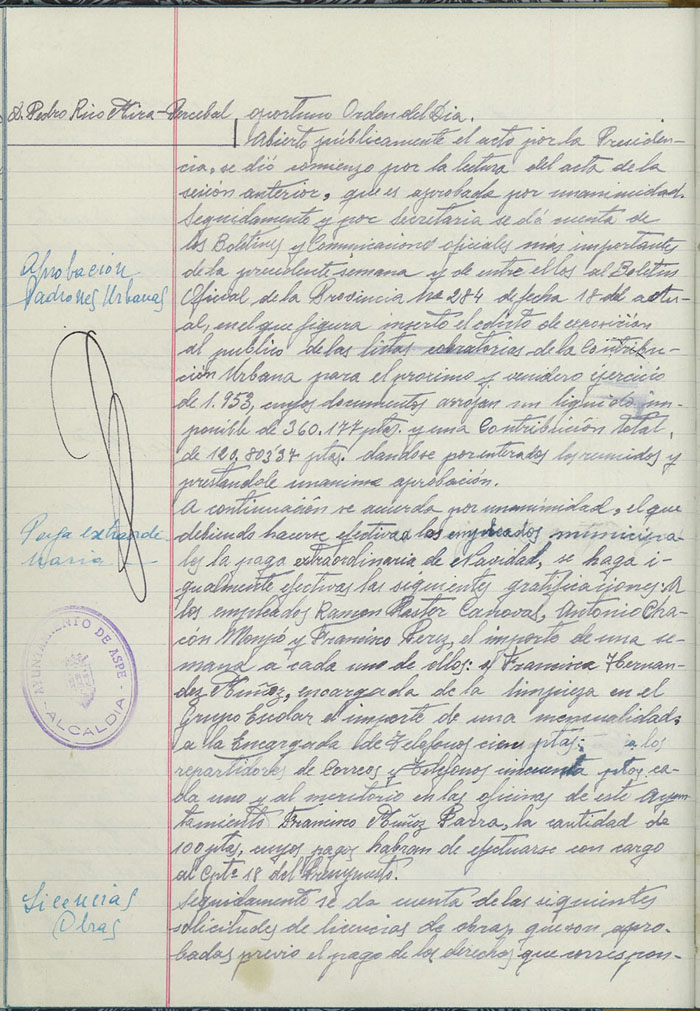 D. Pedro Rico Mira-Percebal
oportuno Orden del Dia.
Abierto públicamente el acto por la Presiden-
cia, se dió comienzo por la lectura del acta de la
sesión anterior, que es aprobada por unanimidad.
Seguidamente y por Secretaria se dá cuenta de
los Boletines y Comunicaciones oficiales más importantes
Aprobación
Padrones Urbanas
de la precedente semana y de entre ellos al Boletin
Oficial de la Provincia nº 284 de fecha 18 del actu-
al, en el que figura inserto el edicto de exposición
al publico de las listas cobratorias de la Contribu-
ción Urbana para el proximo y venidero ejercicio
de 1.953, cuyos documentos arrojan un liquido im-
ponible de 360.177 ptas. y una Contribucion total,
de 120.803'37 ptas. dandose por enterados los reunidos y
prestandole unanime aprobación.
Paga extraordi
naria
A continuación se acuerda por unanimidad, el que
debiendo hacerse efectiva a los empleados municipa-
les la paga extraordinaria de Navidad, se haga i-
gualmente efectivas las siguientes gratificaciones: A
los empleados Ramon Pastor Canovas, Antonio Cha-
cón Monjó y Francisco Perez, el importe de una se-
mana a cada uno de ellos: a Francisca Hernan-
dez Muñoz, encargada de la limpieza en el
Grupo Escolar el importe de una mensualidad,
a la Encargada de Telefonos cien ptas; a los
repartidores de Correos y Telefonos cincuenta ptas ca-
da uno y al meritorio en las oficinas de este Ayun-
tamiento Francisco Muñoz Parra, la cantidad de
100 ptas, cuyos pagos habran de efectuarse con cargo
al Cptº 18 del Presupuesto.
AYUNTAMIENTO DE ASPE
ALCALDIA
Licencias
Obras
Seguidamente se da cuenta de las siguientes
solicitudes de licencias de obras, que son apro-
badas previo el pago de los derechos que correspon-